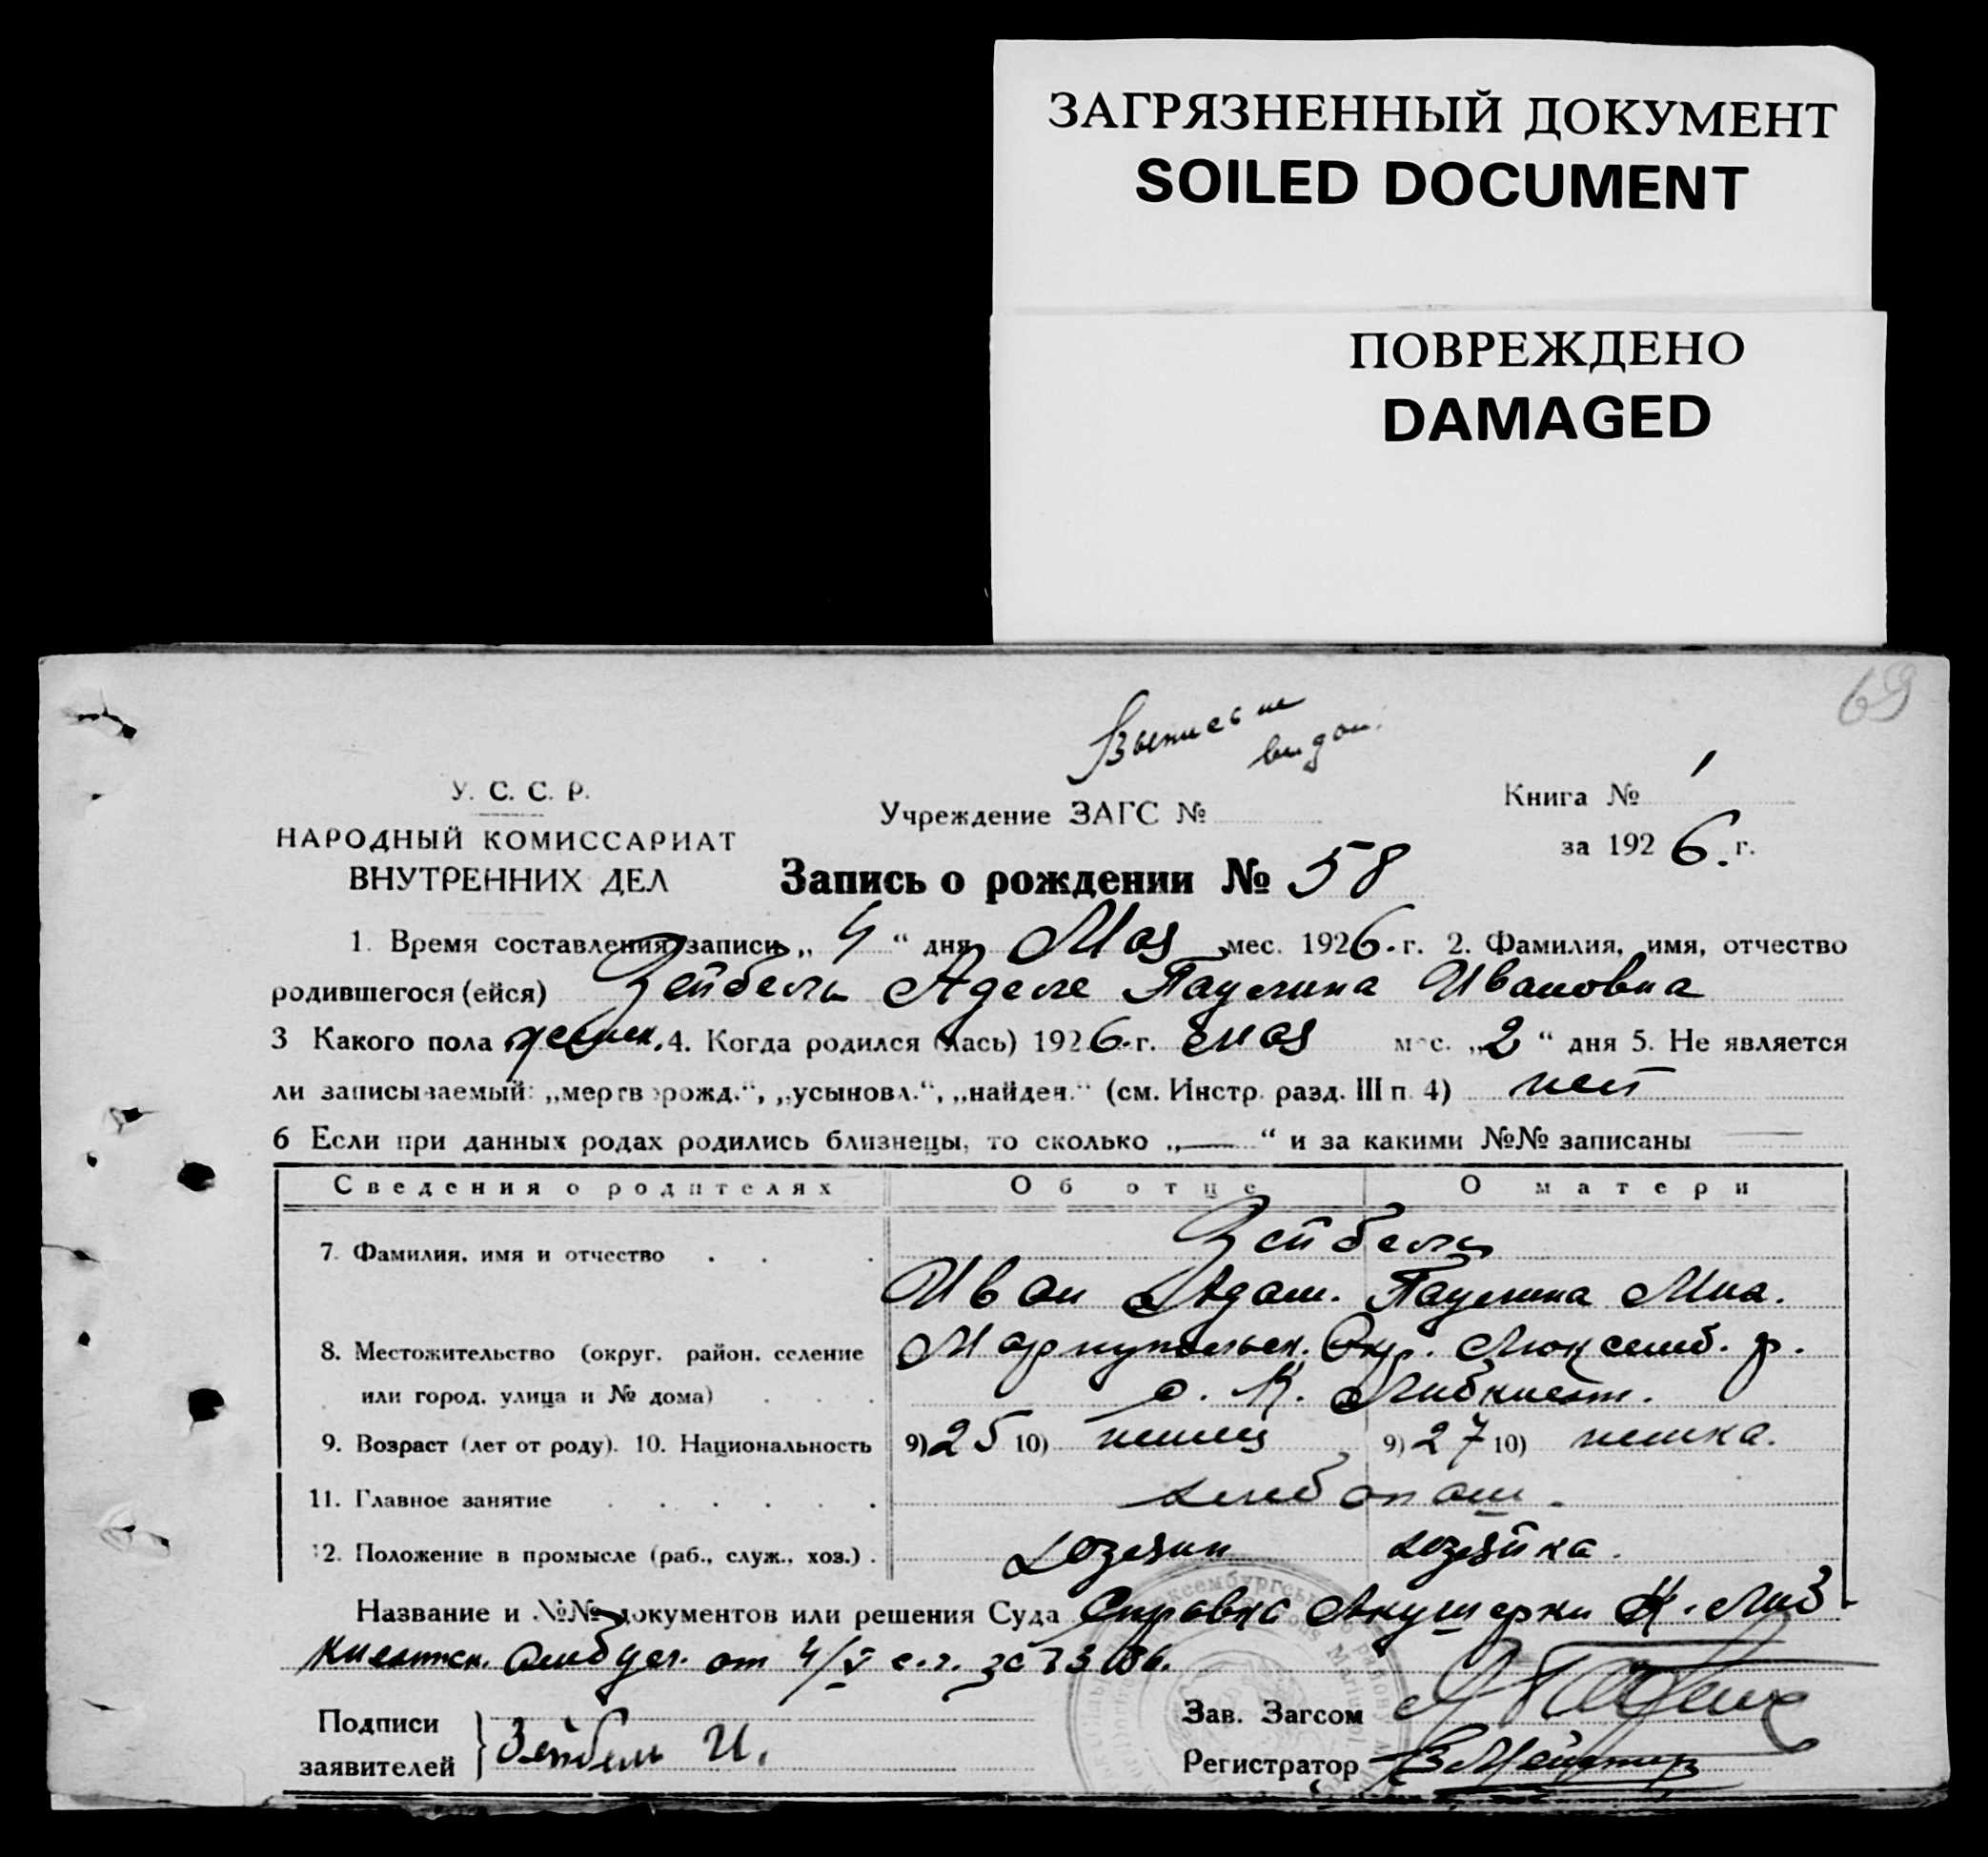 ЗАГРЯЗНЕННЫЙ ДОКУМЕНТ
SOILED DOCUMENT
ПОВРЕЖДЕНО
DAMAGED
69
Выпись не
выдан.
У. С. С. Р.
НАРОДНЫЙ КОМИССАРИАТ
ВНУТРЕННИХ ДЕЛ
Учреждение ЗАГС №
Книга № 1
за 1926. г.
Запись о рождении № 58
1. Время составления записи „4“ дня Мая мес. 1926. г. 2. Фамилия, имя, отчество
родившегося (ейся) Зейбель Аделе Паулина Ивановна
3 Какого пола женск. 4. Когда родился (лась) 1926. г. мая мес. „2“ дня 5. Не является
ли записываемый: „мертворожд.“, „усыновл.“, „найден.“ (см. Инстр. разд. III п. 4) нет
6 Если при данных родах родились близнецы, то сколько „—“ и за какими №№ записаны —
Сведения о родителях Об отце О матери
7. Фамилия, имя и отчество Зейбель
Иван Адам. Паулина Мих.
8. Местожительство (округ, район, селение Мариупольск. Окр. Люксемб. р.
или город, улица и № дома) с. К. Либкнехт.
9. Возраст (лет от роду). 10. Национальность 9) 25 10) немец 9) 27 10) немка.
11. Главное занятие хлебопаш.
12. Положение в промысле (раб., служ., хоз.) хозяин хозяйка.
Название и №№ документов или решения Суда Справка Акушерки К. Либ-
кнехтск. Амбул. от 4/V с.г. за №
Подписи
заявителей } Зейбель И.
Зав. Загсом
Регистратор